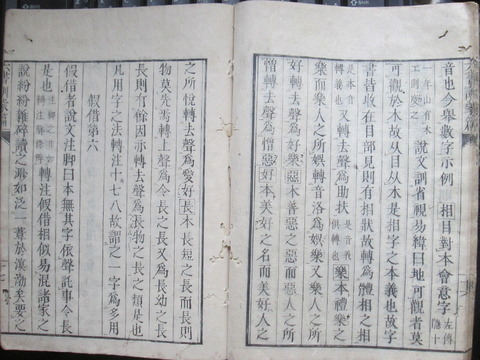 音也今舉數字示例 相目對本會意字 左傳隱十
一年山有木工則度之 說文訓省視易緯曰地可觀者莫
可觀於木故从目从木是相字之本義也故字
書皆收在目部見則有相狀故轉爲體相之相
是本音轉義也 又轉去聲爲助扶 是音義俱轉也 樂本禮樂之
樂而樂人之所娛轉音洛爲娛樂又樂人之所
好轉去聲爲好樂惡本善惡之惡而惡人之所
憎轉去聲爲憎惡好本美好之名而美好人之
之所轉去聲爲愛好長本長短之長而長則
物莫先焉轉上聲爲令長之長又爲長幼之長
長則有餘因亦轉去聲爲長物之長之類是也
凡用字之法轉注十七八故謂之一字爲多用
假借第六
假借者說文注脚曰本無其字依聲託事令長
是也 轉注假借相似易混諸家之
說紛紛雜碎讀之渺如泛一葦於漢渤矣要之